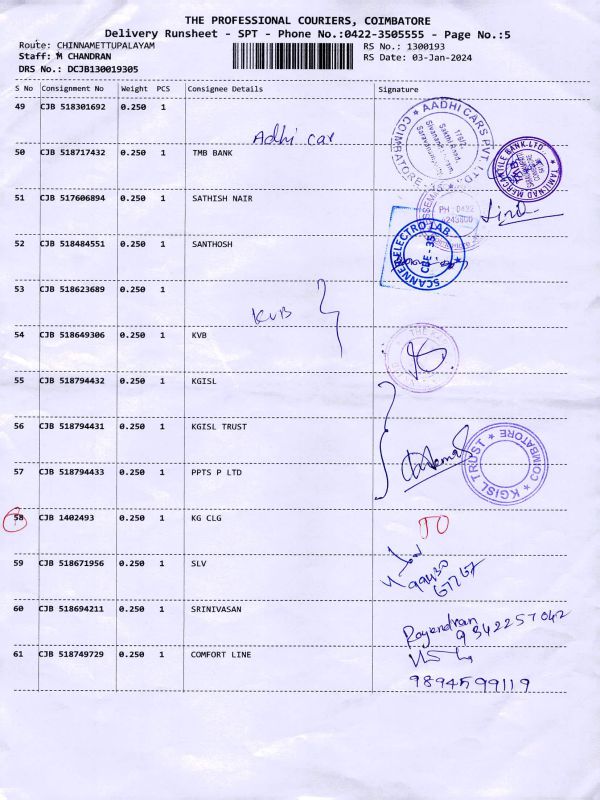 THE PROFESSIONAL COURIERS, COIMBATORE
Delivery Runsheet - SPT - Phone No.:0422-3505555 - Page No.:5
Route: CHINNAMETTUPALAYAM
RS No.: 1300193
Staff: M CHANDRAN
RS Date: 03-Jan-2024
DRS No.: DCJB130019305
S No Consignment No Weight PCS Consignee Details Signature
49 CJB 518301692 0.250 1
Adhi car
AADHI CARS PVT. LTD
COIMBATORE
50 CJB 518717432 0.250 1 TMB BANK
TAMILNAD MERCANTILE BANK LTD
51 CJB 517606894 0.250 1 SATHISH NAIR
PH 0422
52 CJB 518484551 0.250 1 SANTHOSH
SCANNER ELECTRO LAB
CBE - 35
53 CJB 518623689 0.250 1
KVB
54 CJB 518649306 0.250 1 KVB
55 CJB 518794432 0.250 1 KGISL
56 CJB 518794431 0.250 1 KGISL TRUST
KGISL TRUST
COIMBATORE
57 CJB 518794433 0.250 1 PPTS P LTD
58 CJB 1402493 0.250 1 KG CLG
TO
59 CJB 518671956 0.250 1 SLV
99430
67767
60 CJB 518694211 0.250 1 SRINIVASAN
Rajendran
9342257042
61 CJB 518749729 0.250 1 COMFORT LINE
9894599119